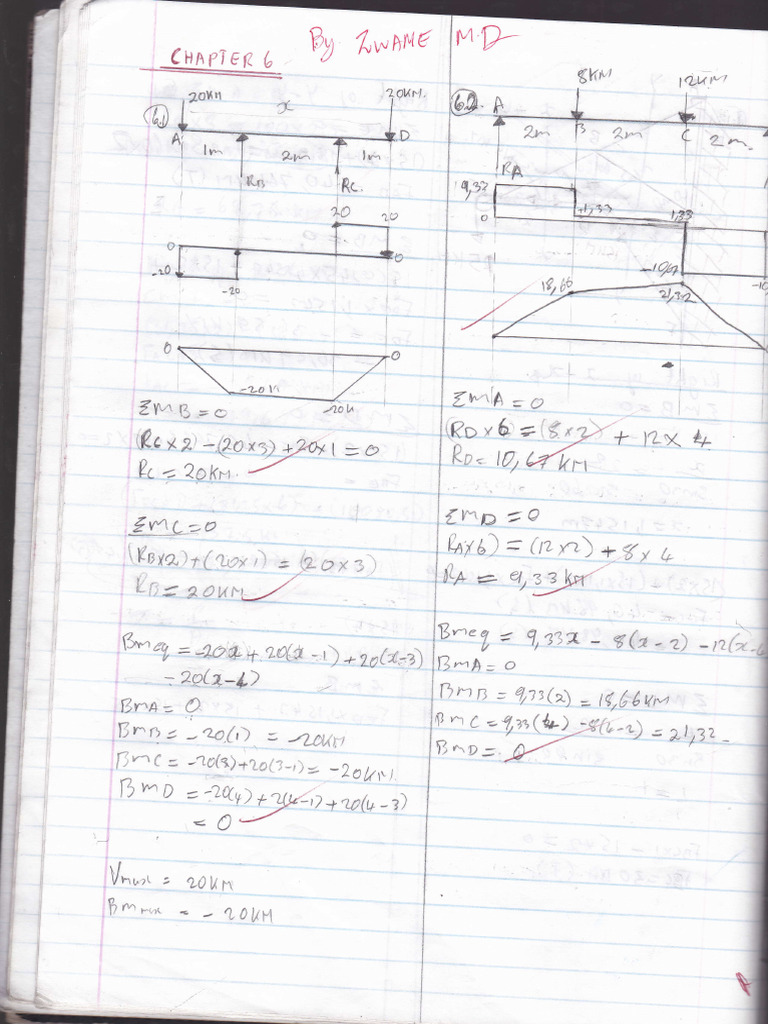 By ZWAME M.D
CHAPTER 6
6.1
20KN
x
20KN.
A
D
1m
2m
1m
RB
RC.
20
20
0
0
-20
-20
0
0
-20N
-20N
ΣMB = 0
(RC x 2 - (20x3) + 20x1 = 0
RC = 20KN.
ΣMC = 0
(RBx2) + (20x1) = (20x3)
RB = 20KN
BMeq = -20x + 20(x-1) + 20(x-3)
- 20(x-4)
BMA = 0
BMB = -20(1) = -20KN
BMC = -20(3) + 20(3-1) = -20KN.
BMD = -20(4) + 2(4-1) + 20(4-3)
= 0
Vmax = 20KN
BMmax = - 20KN
6.2
8KN
12KN
A
B
C
2m
2m
2m.
RA
9,33
+1,33
1,33
0
-10,67
-10
18,66
21,32
ΣMA = 0
(RD x 6 = (8x2) + 12x4
RD = 10,67 KN
ΣMD = 0
RAx6) = (12x2) + 8x4
RA = 9,33KN
BMeq = 9,33x - 8(x-2) - 12(x-
BMA = 0
BMB = 9,33(2) = 18,66KN
BMC = 9,33(4) - 8(4-2) = 21,32
BMD = 0